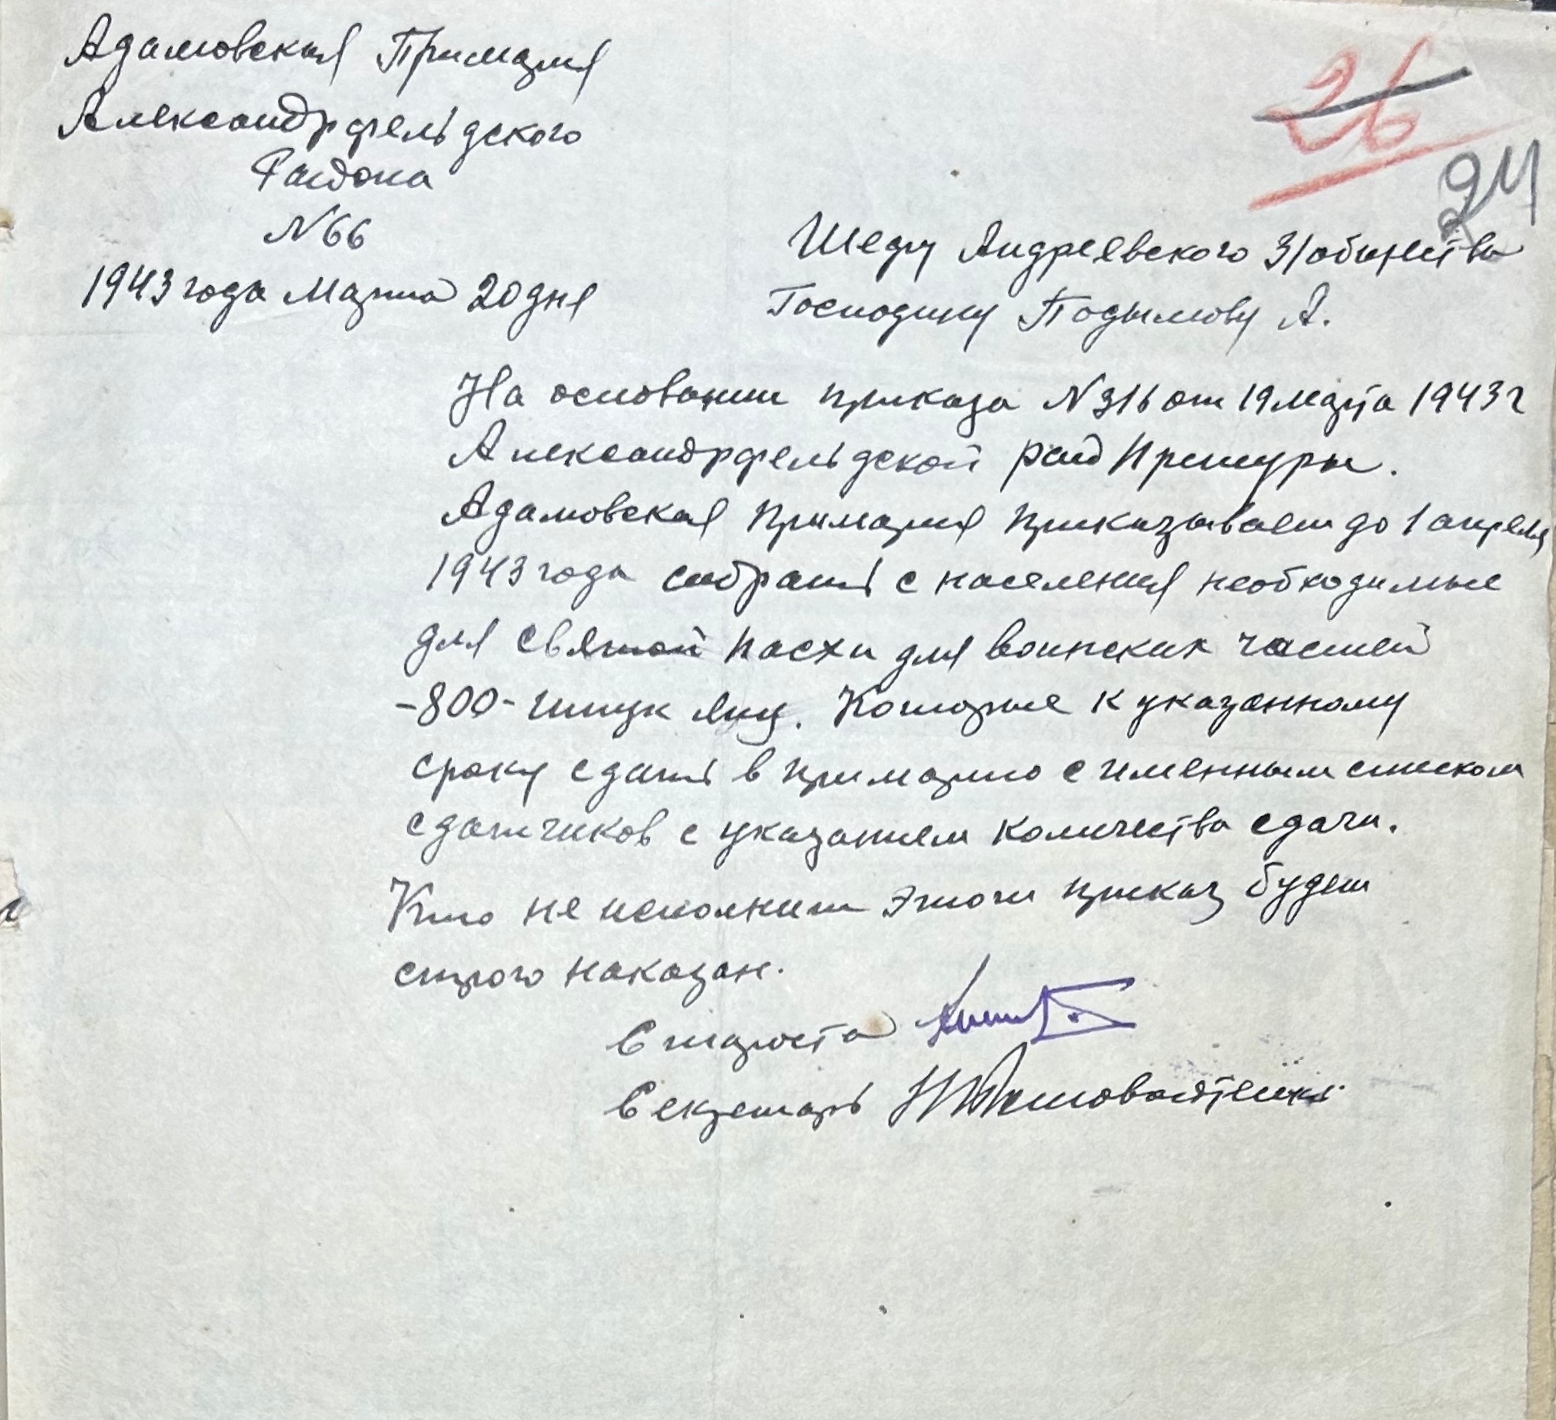 Адамовская Примария
Александрфельдского
Района
N 66
1943 года Марта 20 дня
26
24
Шефу Андреевского З/общества
Господину Подымову А.
На основании приказа N 316 от 19 марта 1943 г
Александрфельдской рай Претуры.
Адамовская Примария приказывает до 1 апреля
1943 года собрать с населения необходимые
для святой пасхи для воинских частей
-800- штук яиц. Которые к указанному
сроку сдать в примарию с именным списком
сдатчиков с указанием количества сдачи.
Кто не исполнит этого приказ будет
строго наказан.
Староста
Секретарь